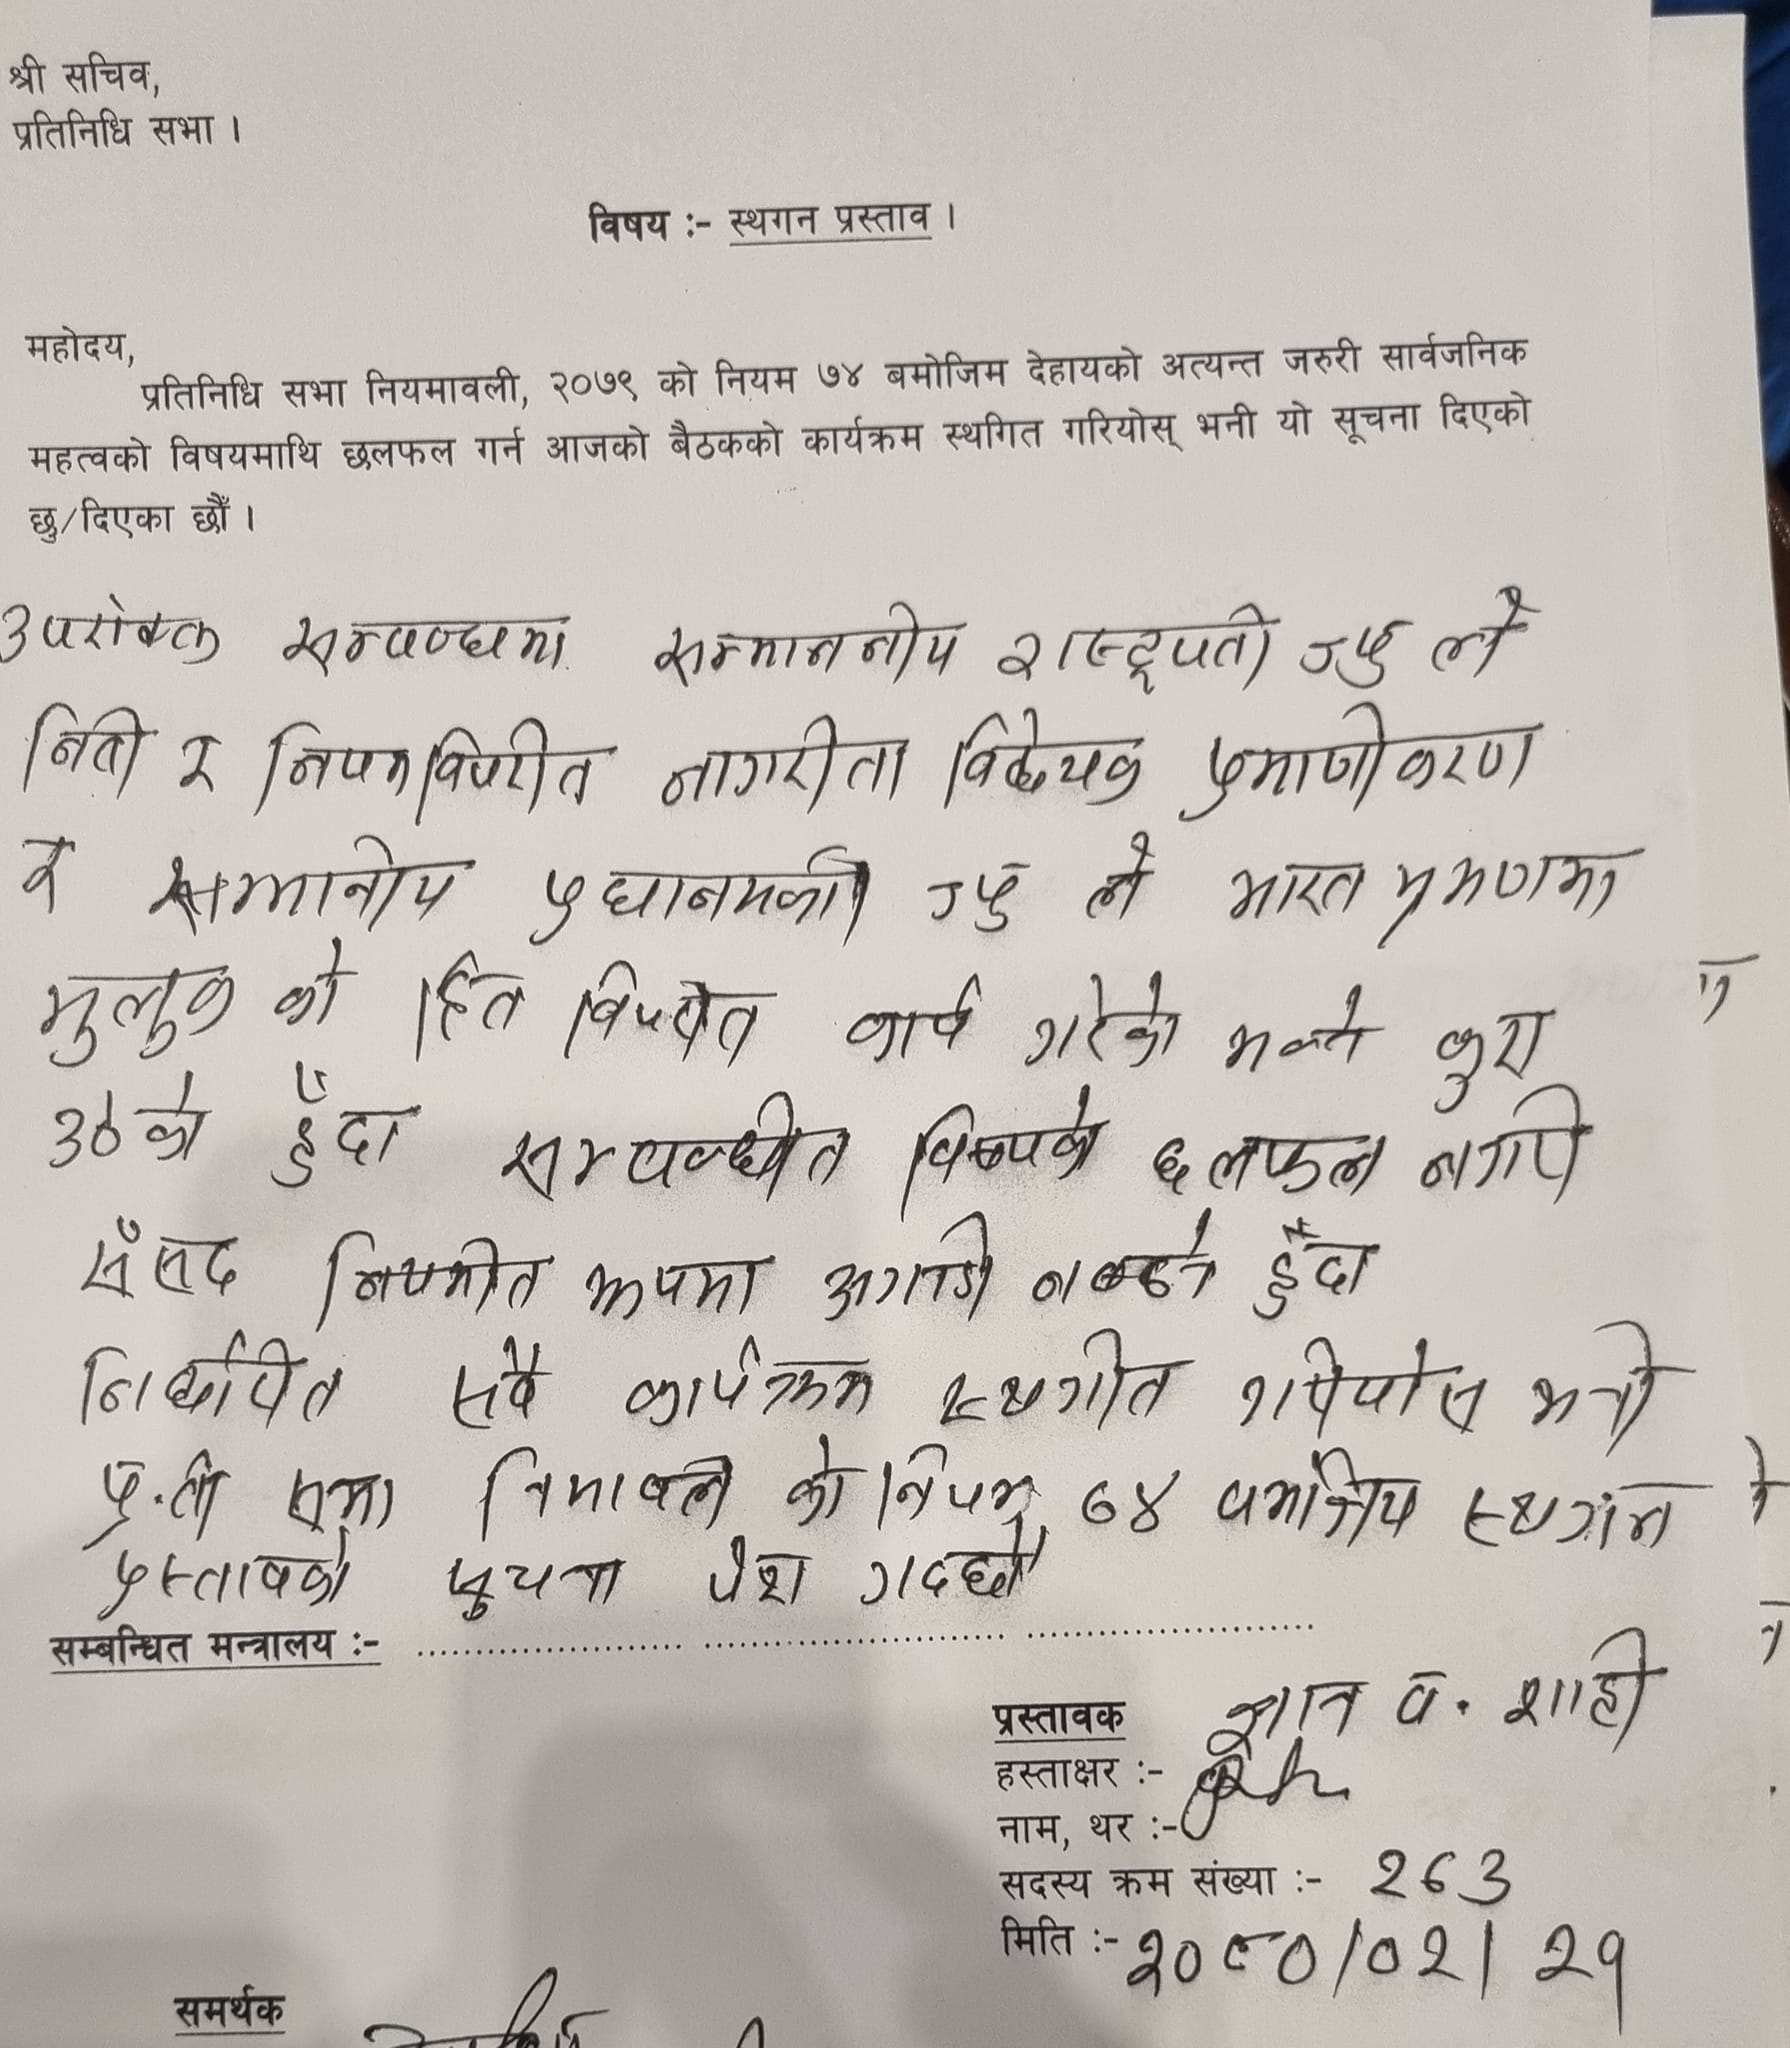 श्री सचिव,
प्रतिनिधि सभा ।
विषय :- स्थगन प्रस्ताव ।
महोदय,
प्रतिनिधि सभा नियमावली, २०७९ को नियम ७४ बमोजिम देहायको अत्यन्त जरुरी सार्वजनिक
महत्वको विषयमाथि छलफल गर्न आजको बैठकको कार्यक्रम स्थगित गरियोस् भनी यो सूचना दिएको
छु/दिएका छौं ।
उपरोक्त सम्बन्धमा सम्माननीय रास्ट्रपती ज्यु ले
निती र नियम विपरीत नागरीता विधेयक प्रमाणीकरण
र सम्मानीय प्रधानमन्त्री ज्यु ले भारत भ्रमणमा
मुलुक को हित विपरीत कार्य गरेको भन्ने कुरा
उठेको हुँदा सम्बन्धीत विषयको छलफल नगरी
संसद नियमीत रुपमा अगाडी नबढ्ने हुँदा
निर्धारित सबै कार्यक्रम स्थगीत गरियोस भनी
प्र.ती सभा निमावली को नियम ७४ बमोजिम स्थगन
प्रस्तावको सुचना पेश गर्दछौं
सम्बन्धित मन्त्रालय :- ................................................................
प्रस्तावक ज्ञान ब. शाही
हस्ताक्षर :-
नाम, थर :-
सदस्य क्रम संख्या :- २६३
मिति :- २०८०/०२/२९
समर्थक